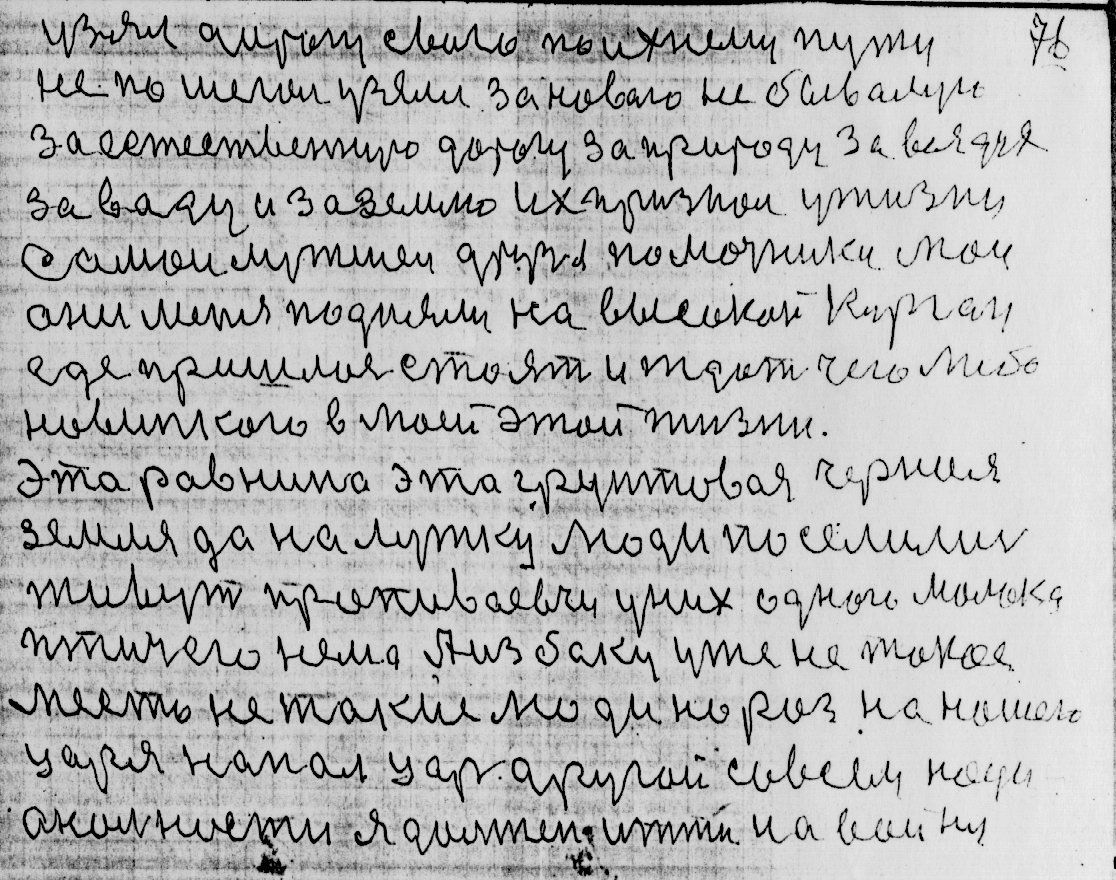 узял дирогу свою по ихнему путу 76
не пошегол узяли за новаго не бывалую
за естественную дорогу за природу за вездух
за ваду и за землю их признал у жизни
Самои лутшеи друзя помочники мои
они меня подняли на высокай Курган
где пришлоя стоят и ждат чего либо
новинкого в моей этой жизни.
Эта равнина эта грунтовая черная
земля да на лужку люди поселилис
живут проживаевчи у них одного молока
птичего нема Аиз баку уже не такое
место не такие люди но раз на нашего
царя напал цар другой совсем наци
анолности я должен итти на войну